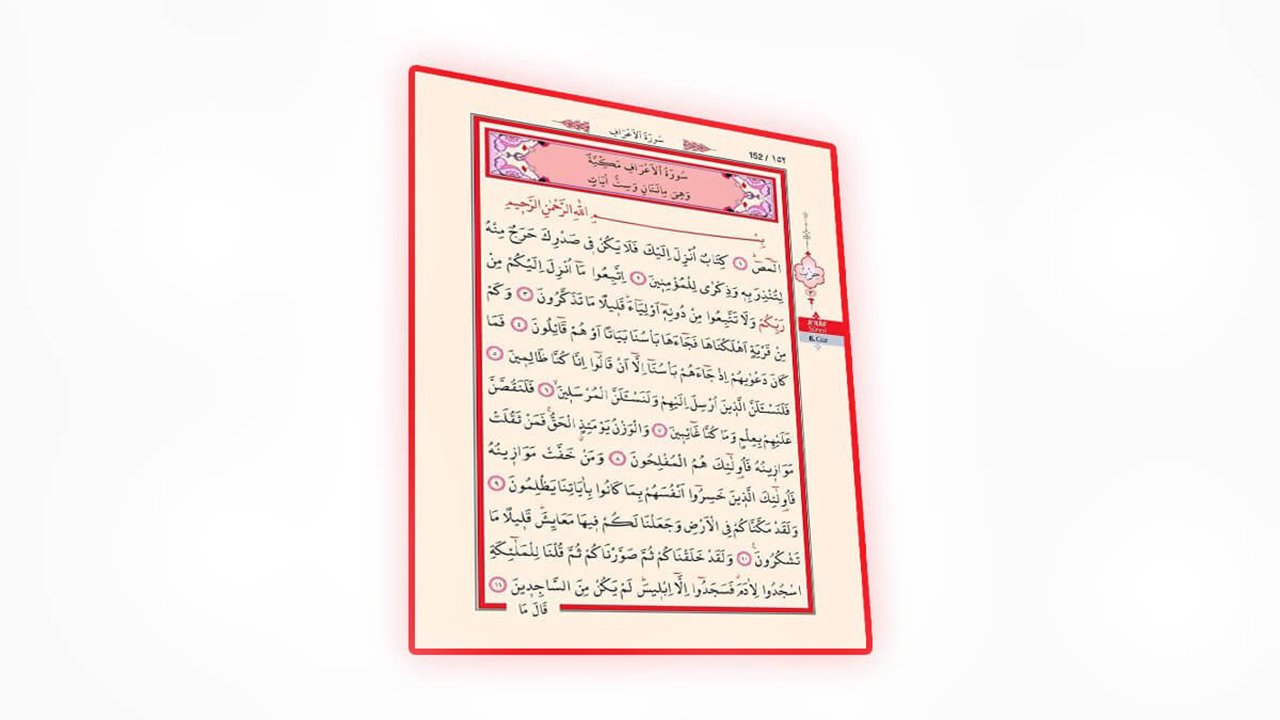 سُورَةُ الْاَعْرَافِ
152 / ١٥٢
سُورَةُ الْاَعْرَافِ مَكِّيَّةٌ
وَهِيَ مِائَتَانِ وَسِتُّ اٰيَاتٍ
بِسْمِ اللّٰهِ الرَّحْمٰنِ الرَّحِيمِ
الٓمٓصٓ ١ كِتَابٌ اُنْزِلَ اِلَيْكَ فَلَا يَكُنْ فِى صَدْرِكَ حَرَجٌ مِنْهُ
لِتُنْذِرَ بِهِ وَذِكْرٰى لِلْمُؤْمِنِينَ ٢ اِتَّبِعُوا مَٓا اُنْزِلَ اِلَيْكُمْ مِنْ
رَبِّكُمْ وَلَا تَتَّبِعُوا مِنْ دُونِهٓ اَوْلِيَٓاءَۜ قَلِيلًا مَا تَذَكَّرُونَ ٣ وَكَمْ
مِنْ قَرْيَةٍ اَهْلَكْنَاهَا فَجَٓاءَهَا بَأْسُنَا بَيَاتًا اَوْ هُمْ قَٓائِلُونَ ٤ فَمَا
كَانَ دَعْوٰيهُمْ اِذْ جَٓاءَهُمْ بَأْسُنَٓا اِلَّٓا اَنْ قَالُٓوا اِنَّا كُنَّا ظَالِمِينَ ٥
فَلَنَسْـَٔلَنَّ الَّذِينَ اُرْسِلَ اِلَيْهِمْ وَلَنَسْـَٔلَنَّ الْمُرْسَلِينَۙ ٦ فَلَنَقُصَّنَّ
عَلَيْهِمْ بِعِلْمٍ وَمَا كُنَّا غَٓائِبِينَ ٧ وَالْوَزْنُ يَوْمَئِذٍۨ الْحَقُّۚ فَمَنْ ثَقُلَتْ
مَوَازِينُهُ فَاُو۬لٰٓئِكَ هُمُ الْمُفْلِحُونَ ٨ وَمَنْ خَفَّتْ مَوَازِينُهُ
فَاُو۬لٰٓئِكَ الَّذِينَ خَسِرُٓوا اَنْفُسَهُمْ بِمَا كَانُوا بِاٰيَاتِنَا يَظْلِمُونَ ٩
وَلَقَدْ مَكَّنَّاكُمْ فِى الْاَرْضِ وَجَعَلْنَا لَكُمْ فِيهَا مَعَايِشَۜ قَلِيلًا مَا
تَشْكُرُونَ۟ ١٠ وَلَقَدْ خَلَقْنَاكُمْ ثُمَّ صَوَّرْنَاكُمْ ثُمَّ قُلْنَا لِلْمَلٰٓئِكَةِ
اسْجُدُوا لِاٰدَمَۗ فَسَجَدُٓوا اِلَّٓا اِبْلِيسَۜ لَمْ يَكُنْ مِنَ السَّاجِدِينَ ١١
قَالَ مَا
A'RÂF
Sûresi
8. Cüz